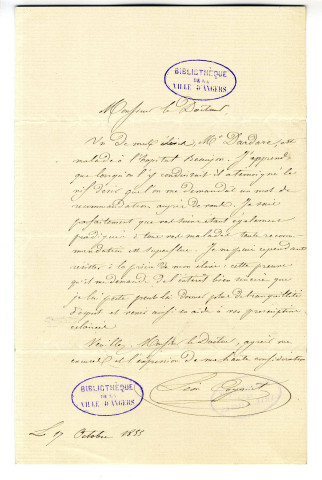 BIBLIOTHÈQUE
DE LA
VILLE D'ANGERS
Monsieur le Docteur
Un de mes élèves, Mr Dardare, est
malade à l'hôpital Beaujon. J'apprends
que lorsqu'on l'y conduisait il a témoigné le
vif désir que l'on me demandât un mot de
recommandation auprès de vous. Je sais
parfaitement que vos soins étant également
prodigués à tous vos malades toute recom-
mandation est superflue. Je ne puis cependant
résister à la prière de mon élève : cette preuve
qu'il me demande de l'intérêt bien sincère que
je lui porte peut lui donner plus de tranquillité
d'esprit et venir ainsi en aide à vos prescriptions
Veuillez, Monsieur le Docteur, agréer
et l'expression de ma haute considération
Léon
BIBLIOTHÈQUE
DE LA
VILLE D'ANGERS
Le 17 Octobre 1855